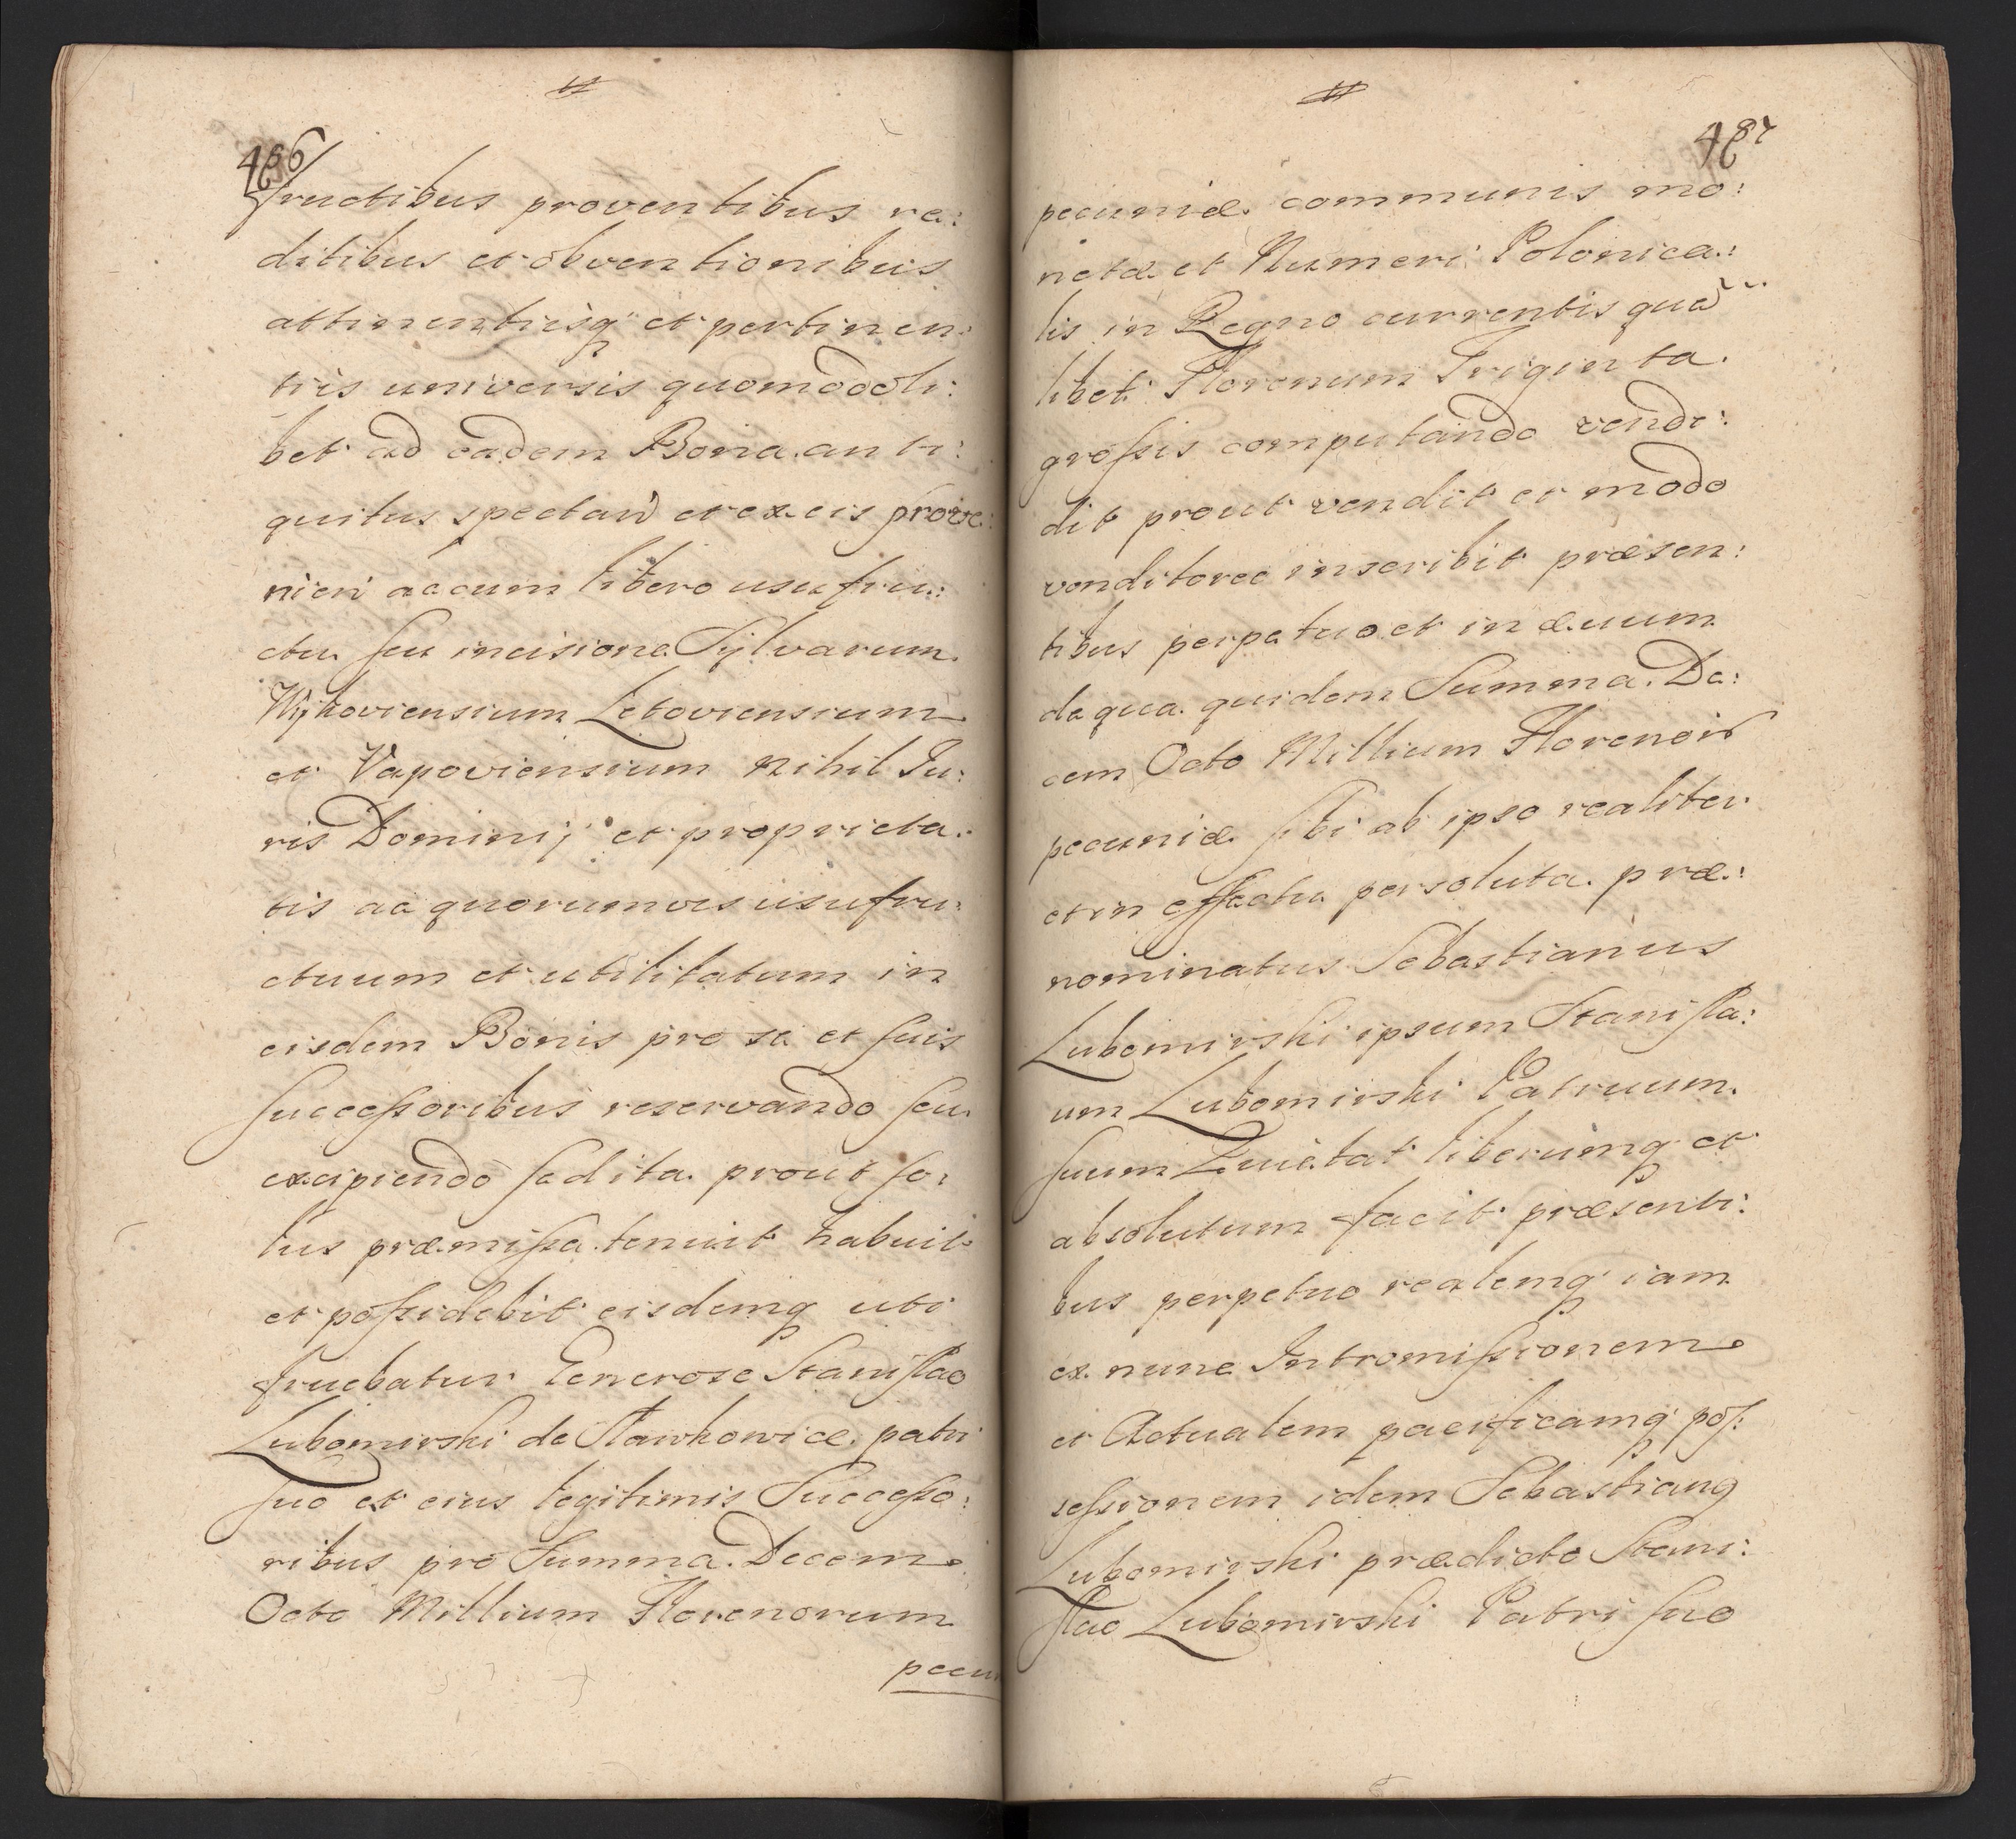 486
fructibus proventibus re:
ditibus et obventionibus
attinentiisq et pertinen:
tiis universis quomodoli:
bet ad eadem Bona anti:
quitus spectan et ex eis prove:
nien ac cum libero usufru:
ctu seu incisione Sylvarum
Wijkoviensium Letoviensium
et Vapoviensium nihil Ju:
ris Dominij et proprieta:
tis ac quorumvis usufru:
ctuum et utilitatum in
eisdem Bonis pro se et suis
successoribus reservando seu
excipiendo sed ita prout so:
lus præmissa tenuit habuit
et possidebit eisdemq uti
fruebatur Generoso Stanislao
Lubomirski de Sławkowice patri
suo et eius legitimis Successo:
ribus pro Summa Decem
Octo Millium Florenorum
pecu
487
pecuniæ communis mo:
netæ et Numeri Polonica:
lis in Regno currentis quã
libet Florenum Triginta
grossis computando vendi:
dit prout vendit et modo
venditoreo inscribit præsen:
tibus perpetuo et in ævum
de qua quidem Summa De:
cem Octo Millium Florenor
pecuniæ sibi ab ipso realiter
et in effectu persoluta præ:
nominatus Sebastianus
Lubomirski ipsum Stanisla:
um Lubomirski Patruum
suum Quietat liberumq et
absolutum facit præsenti:
bus perpetuo realemq iam
ex nunc Intromissionem
et Actualem pacificamq pos:
sessionem idem Sebastiang
Lubomirski prædicto Stani:
slao Lubomirski Patri suo